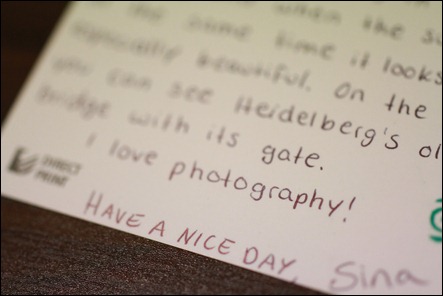 when the su
the same time it looks
especially beautiful. On the
you can see Heidelberg's ol
bridge with its gate.
I love photography!
DIRECT
PRINT
HAVE A NICE DAY, Sina